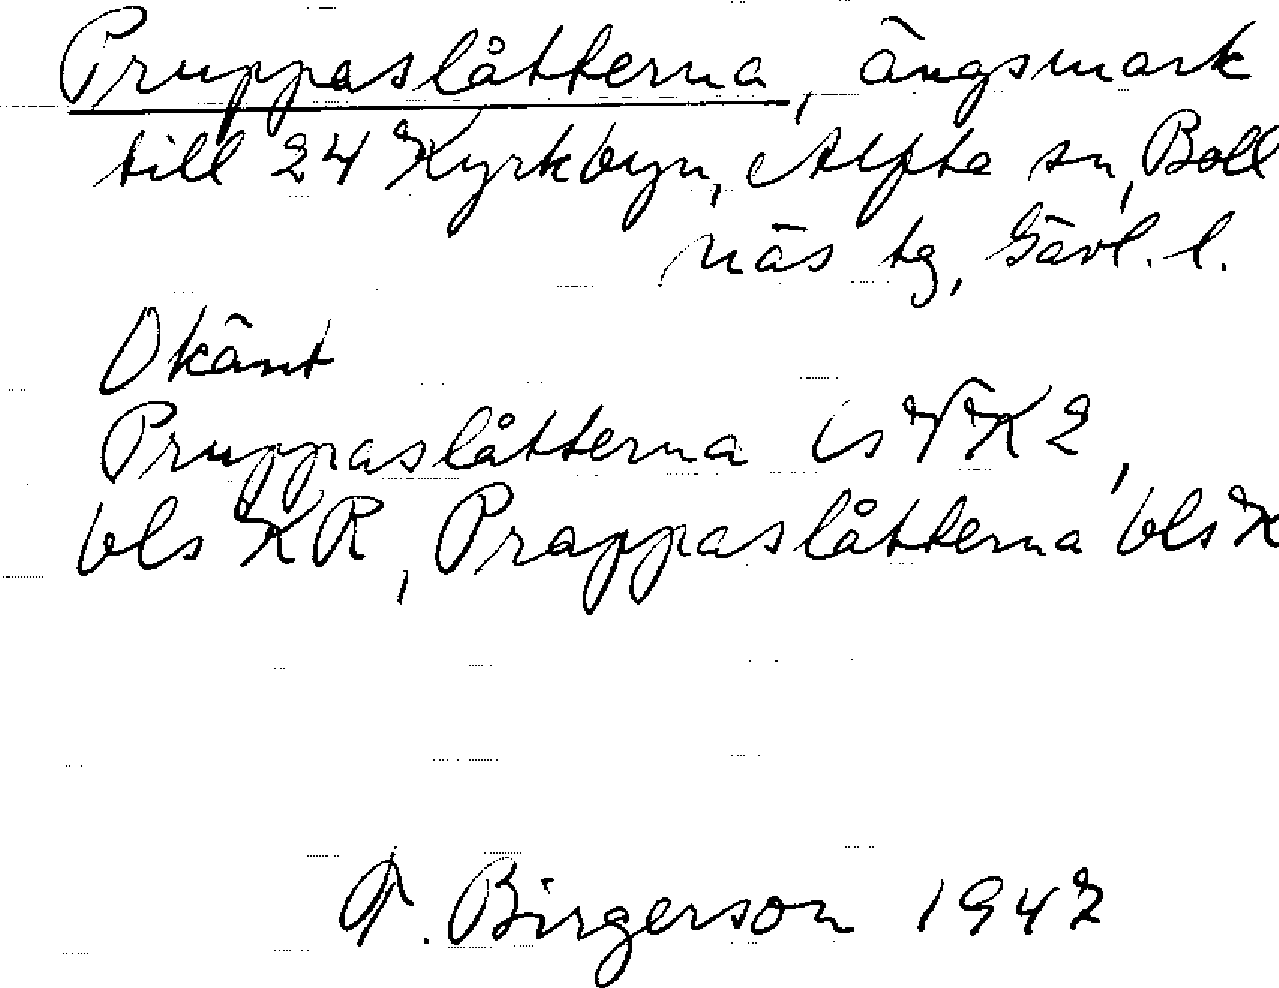 Pruppaslåtterna, ängsmark
till 24 Kyrkbyn, Alfta sn, Boll
näs tg, Gävl. l.
Okänt
Pruppaslåtterna
bls KR, Prappaslåtterna bls K
T. Birgerson 1947